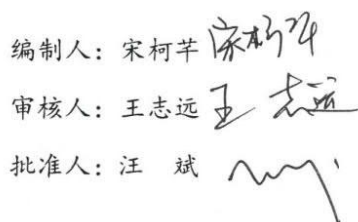 编制人：宋柯芊 宋柯芊
审核人：王志远 王志远
批准人：汪　斌